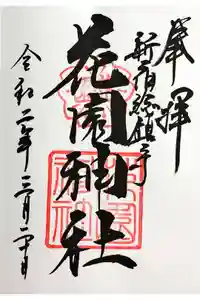 奉拝
新宿総鎮守
花園神社
令和二年三月二十日